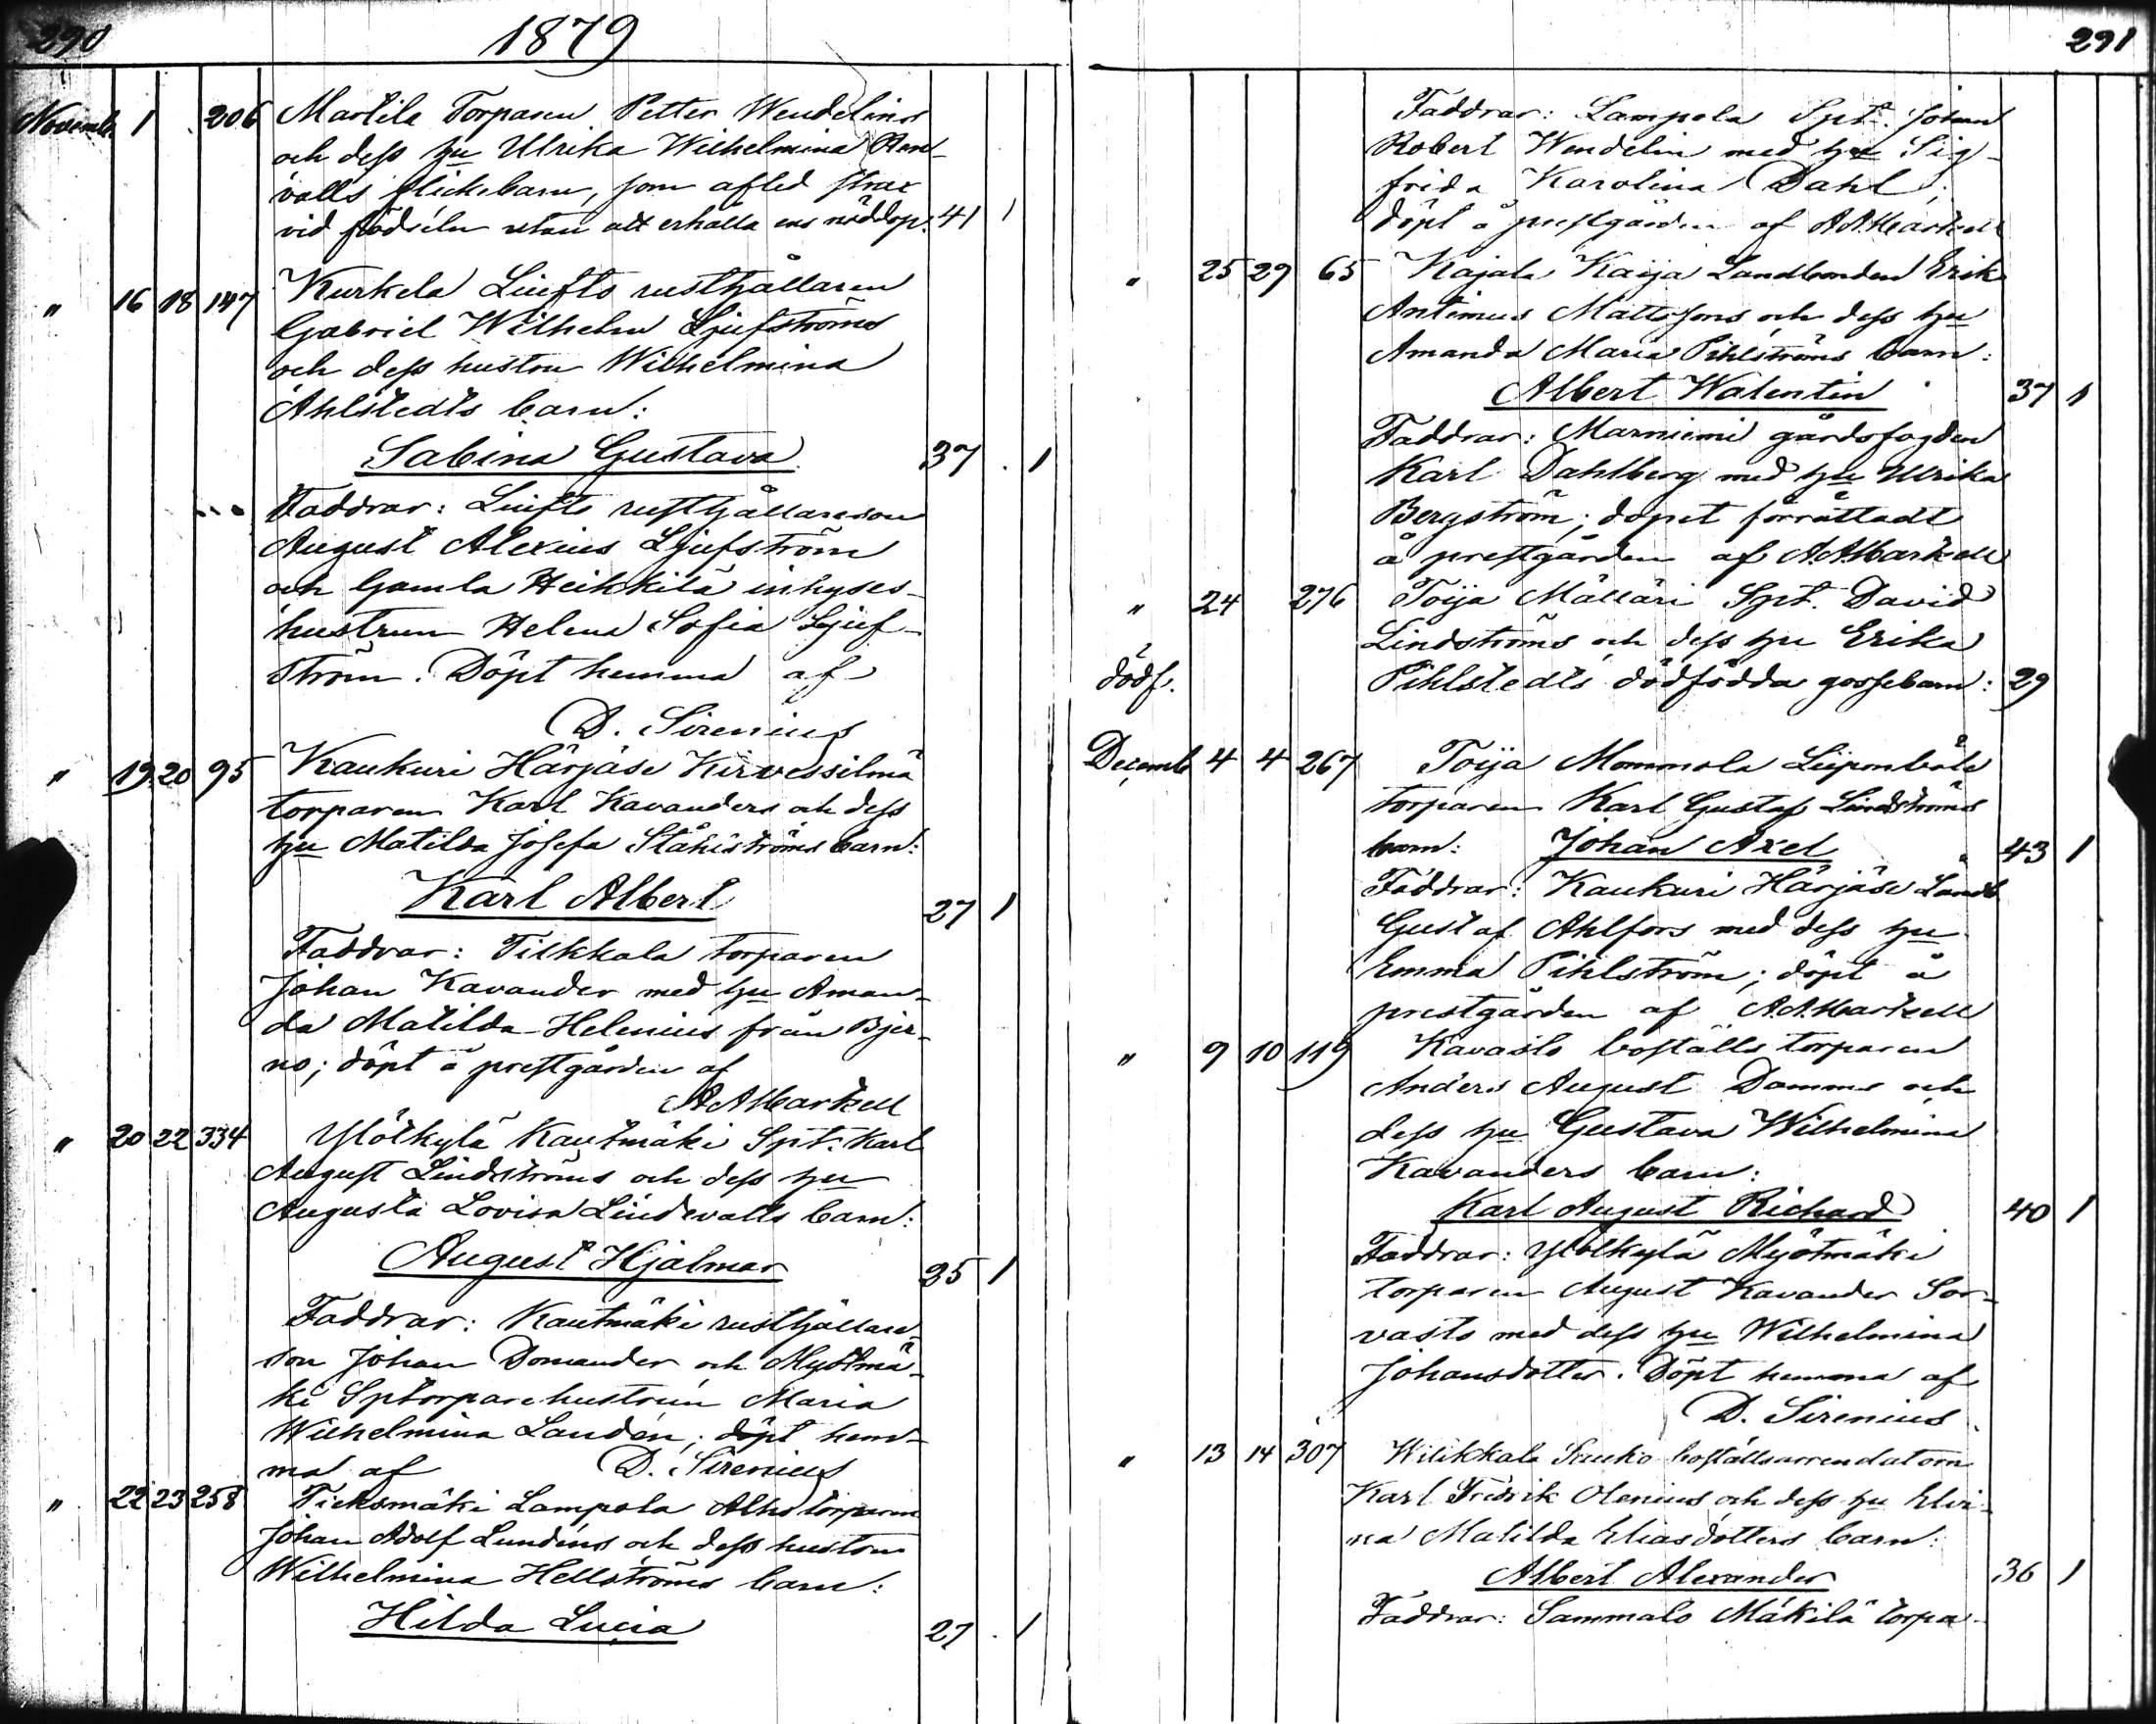 290
1879
Novemb 1 206 Martila Torparen Petter Wendelins
och dess hu Ulrika Wilhelmina Ren-
valls flickebarn, som afled strax
vid födseln utan att erhålla ens nöddop: 41 1
" 16 18 147 Kurkela Liufto rusthållaren
Gabriel Wilhelm Ljufströms
och dess hustru Wilhelmina
Ahlstedts barn:
Sabina Gustava 37 1
Faddrar: Liufto rusthållareson
August Alexius Ljufström
och Gamla Heikkilä inhyses-
hustrun Helena Sofia Ljuf-
ström. Döpt hemma af
D. Sirenius
" 19 20 95 Kaukuri Härjäse Kirvessilmä
torparen Karl Kavanders och dess
hu Matilda Josefa Ståhlströms barn:
Karl Albert 27 1
Faddrar: Tilkkala torparen
Johan Kavander med hu Aman-
da Matilda Helenius från Bjer-
no; döpt å prestgården af
A. A. Markell
" 20 22 334 Ylölkylä Kautmäki Spt. Karl
August Lindströms och dess hu
Augusta Lovisa Lindevalls barn:
August Hjalmar 25 1
Faddrar: Kautmäki rusthållare-
son Johan Domander och Myötmä-
ki Sptorparehustrun Maria
Wilhelmina Landén; döpt hem-
ma af D. Sirenius
" 22 23 258 Tieksmäki Lampola Alho torparen
Johan Adolf Lundéns och dess hustru
Wilhelmina Hellströms barn:
Hilda Lucia 27 1
291
Faddrar: Lampola Spt. Johan
Robert Wendelin med hu Sig-
frida Karolina Dahl;
döpt å prestgården af A. A. Markell
" 25 29 65 Kajala Kaija Landbonden Erik
Antimus Mattssons och dess hu
Amanda Maria Pihlströms barn:
Albert Walentin 37 1
Faddrar: Marniemi gårdsfogden
Karl Dahlberg med hu Ulrika
Bergström; dopet förrättadt
å prestgården af A. A. Markell
" 24 276 Toija Mälläri Spt. David
Lindströms och dess hu Erika
dödf. Pihlstedts dödfödda gossebarn: 29
Decemb 4 4 267 Toija Mommola
torparen Karl Gustaf Lindströms
barn: Johan Axel 43 1
Faddrar: Kaukuri Härjäse Landb
Gustaf Ahlfors med dess hu
Emma Pihlström; döpt å
prestgården af A. A. Markell
" 9 10 119 Kavasto boställs torparen
Anders August Domms och
dess hu Gustava Wilhelmina
Kavanders barn:
Karl August Richard 40 1
Faddrar: Ylölkylä Myötmäki
torparen August Kavander Sor-
vasto med dess hu Wilhelmina
Johansdotter. Döpt hemma af
D. Sirenius
" 13 14 307 Wilikkala Sauko boställsarrendatorn
Karl Fredrik Olenius och dess hu Elvi-
na Matilda Eliasdotters barn:
Albert Alexander 36 1
Faddrar: Sammalo Mäkilä torpa-